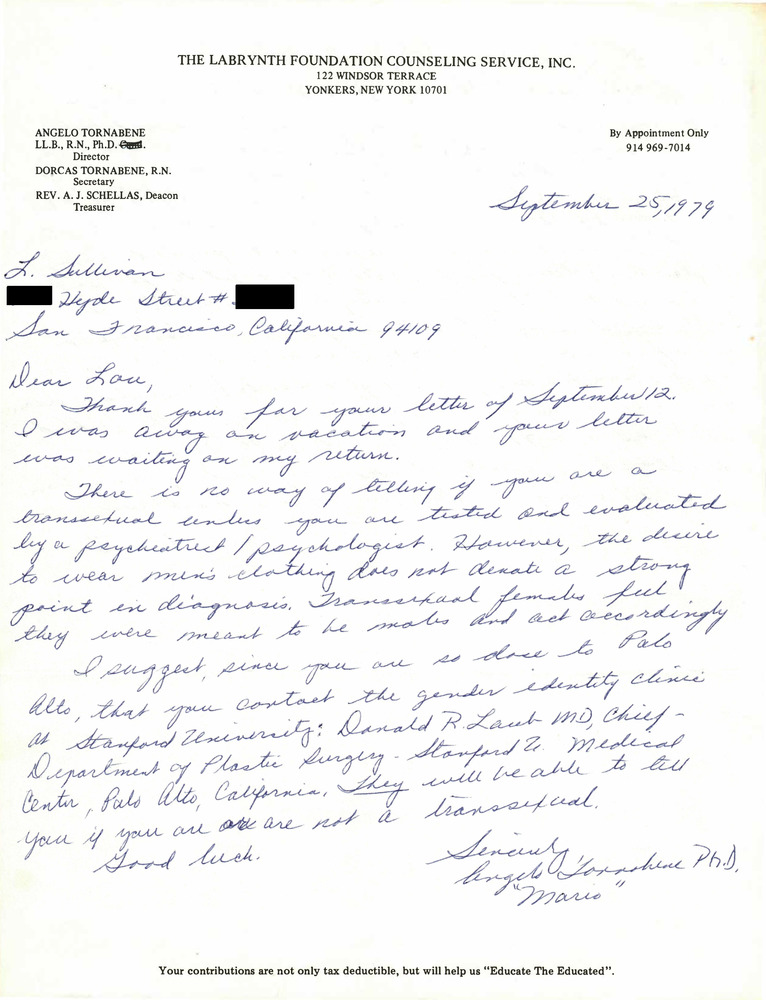 THE LABRYNTH FOUNDATION COUNSELING SERVICE, INC.
122 WINDSOR TERRACE
YONKERS, NEW YORK 10701
ANGELO TORNABENE
LL.B., R.N., Ph.D.
Director
DORCAS TORNABENE, R.N.
Secretary
REV. A. J. SCHELLAS, Deacon
Treasurer
By Appointment Only
914 969-7014
September 25, 1979
L. Sullivan
Hyde Street #
San Francisco, California 94109
Dear Lou,
Thank your for your letter of September 12.
I was away on vacation and your letter
was waiting on my return.
There is no way of telling if you are a
transsexual unless you are tested and evaluated
by a psychiatrist / psychologist. However, the desire
to wear men's clothing does not denote a strong
point in diagnosis. Transsexual females feel
they were meant to be males and act accordingly
I suggest, since you are so close to Palo
Alto, that you contact the gender identity clinic
at Stanford University: Donald R. Laub MD, Chief -
Department of Plastic Surgery - Stanford U. Medical
Center, Palo Alto, California. They will be able to tell
you if you are or are not a transsexual.
Good luck.
Sincerely,
Angelo Tornabene Ph.D.
"Mario"
Your contributions are not only tax deductible, but will help us "Educate The Educated".